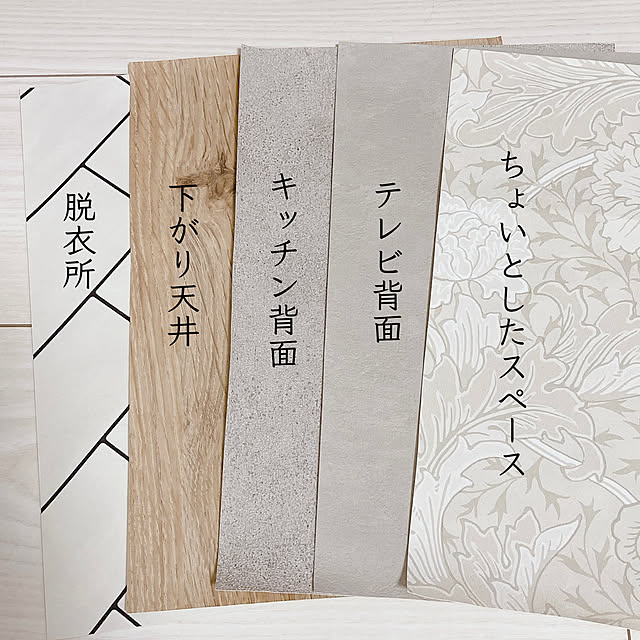 脱衣所
下がり天井
キッチン背面
テレビ背面
ちょいとしたスペース